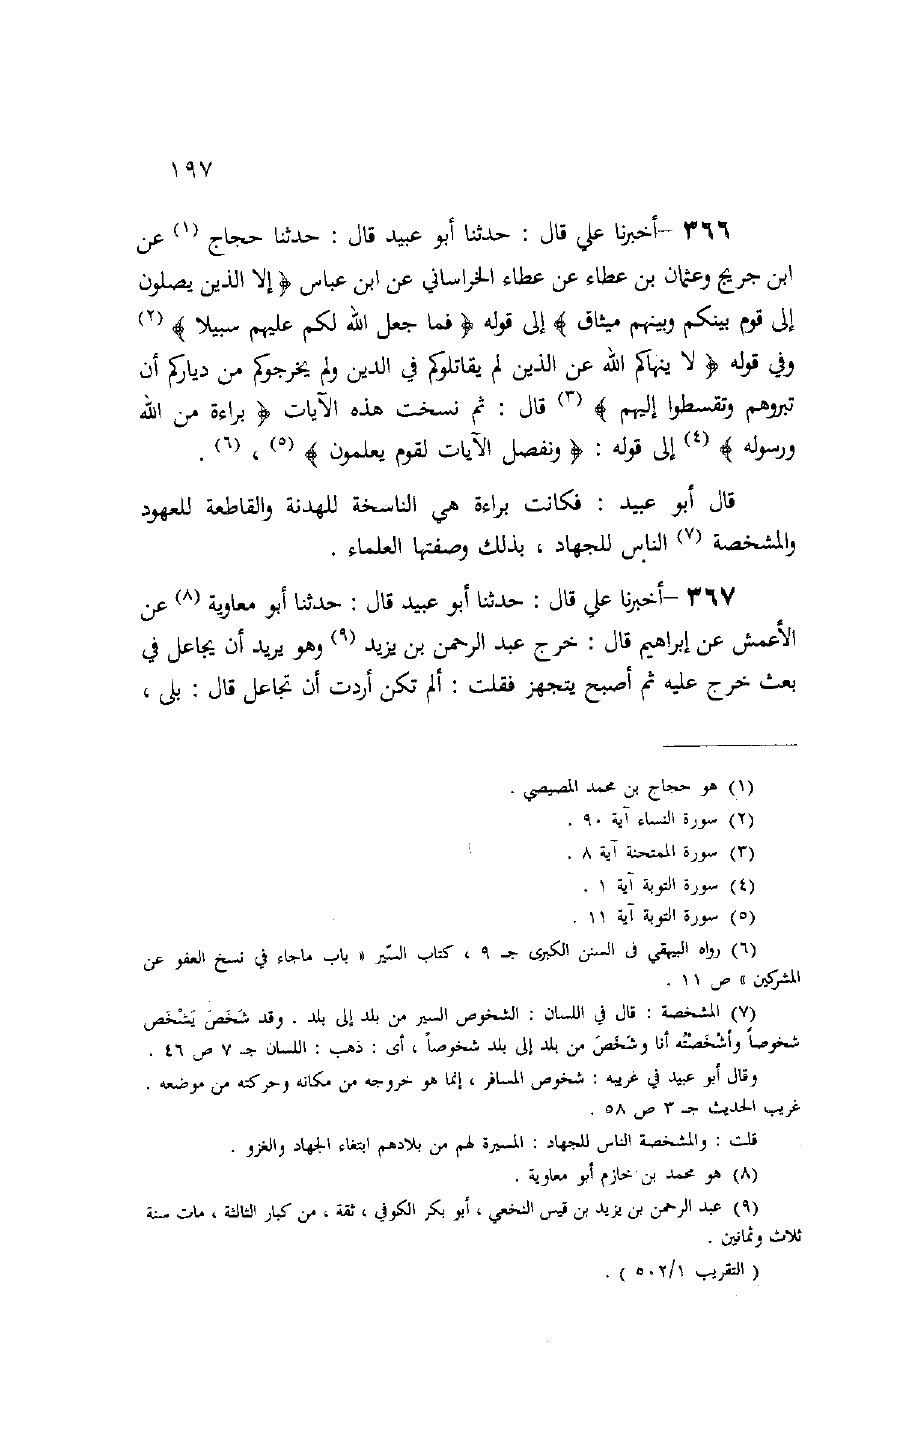 ١٩٧
٣٦٦ - أخبرنا علي قال : حدثنا أبو عبيد قال : حدثنا حجاج (١) عن
ابن جريج وعثمان بن عطاء عن عطاء الخراساني عن ابن عباس ﴿ إلا الذين يصلون
إلى قوم بينكم وبينهم ميثاق ﴾ إلى قوله ﴿ فما جعل الله لكم عليهم سبيلا ﴾ (٢)
وفي قوله ﴿ لا ينهاكم الله عن الذين لم يقاتلوكم في الدين ولم يخرجوكم من دياركم أن
تبروهم وتقسطوا إليهم ﴾ (٣) قال : ثم نسخت هذه الآيات ﴿ براءة من الله
ورسوله ﴾ (٤) إلى قوله : ﴿ ونفصل الآيات لقوم يعلمون ﴾ (٥) ، (٦) .
قال أبو عبيد : فكانت براءة هي الناسخة للهدنة والقاطعة للعهود
والمشخصة (٧) الناس للجهاد ، بذلك وصفتها العلماء .
٣٦٧ - أخبرنا علي قال : حدثنا أبو عبيد قال : حدثنا أبو معاوية (٨) عن
الأعمش عن إبراهيم قال : خرج عبد الرحمن بن يزيد (٩) وهو يريد أن يجاعل في
بعث خرج عليه ثم أصبح يتجهز فقلت : ألم تكن أردت أن تجاعل قال : بلى ،
(١) هو حجاج بن محمد المصيصي .
(٢) سورة النساء آية ٩٠ .
(٣) سورة الممتحنة آية ٨ .
(٤) سورة التوبة آية ١ .
(٥) سورة التوبة آية ١١ .
(٦) رواه البيهقي فى السنن الكبرى جـ ٩ ، كتاب السّير « باب ماجاء في نسخ العفو عن
المشركين » ص ١١ .
(٧) المشخصة : قال في اللسان : الشخوص السير من بلد إلى بلد . وقد شَخَصَ يَشْخَص
شخوصاً وأشْخَصْتُه أنا وشَخَصَ من بلد إلى بلد شخوصاً ، أى : ذهب : اللسان جـ ٧ ص ٤٦ .
وقال أبو عبيد في غريبه : شخوص المسافر ، إنما هو خروجه من مكانه وحركته من موضعه .
غريب الحديث جـ ٣ ص ٥٨ .
قلت : والمشخصة الناس للجهاد : المسيرة لهم من بلادهم ابتغاء الجهاد والغزو .
(٨) هو محمد بن خازم أبو معاوية .
(٩) عبد الرحمن بن يزيد بن قيس النخعي ، أبو بكر الكوفي ، ثقة ، من كبار الثالثة ، مات سنة
ثلاث وثمانين .
( التقريب ٥٠٢/١ ) .